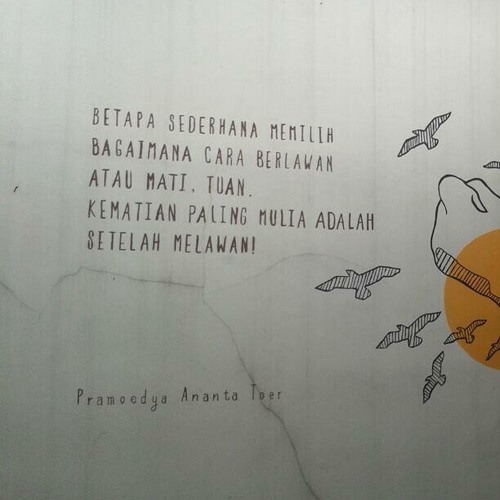 BETAPA SEDERHANA MEMILIH
BAGAIMANA CARA BERLAWAN
ATAU MATI, TUAN.
KEMATIAN PALING MULIA ADALAH
SETELAH MELAWAN!
Pramoedya Ananta Toer